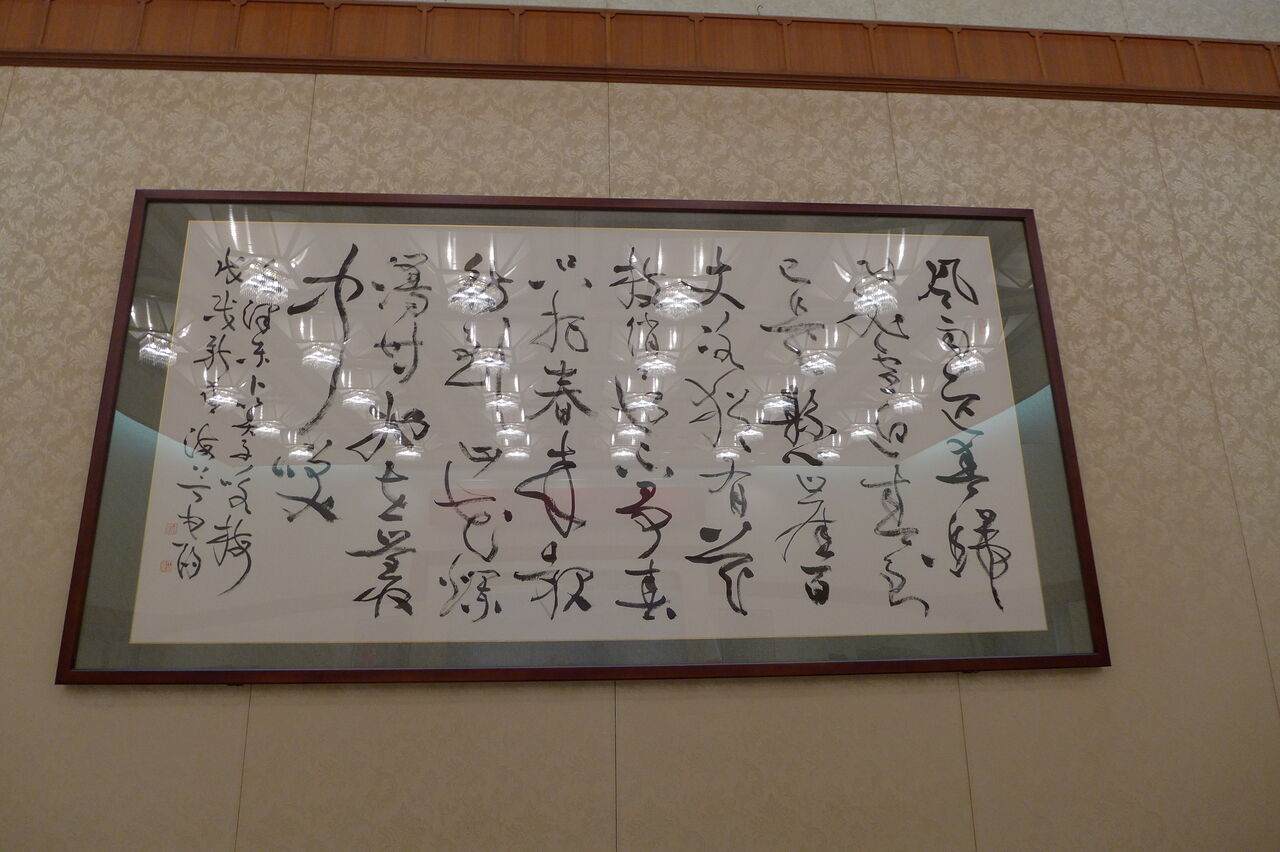 风雨送春歸
飞雪迎春到
已是懸崖百
丈冰犹有花
枝俏俏也不争春
只把春来报
待到山花爛
漫时她在丛
中笑
泽东卜算子咏梅
戊戌新春